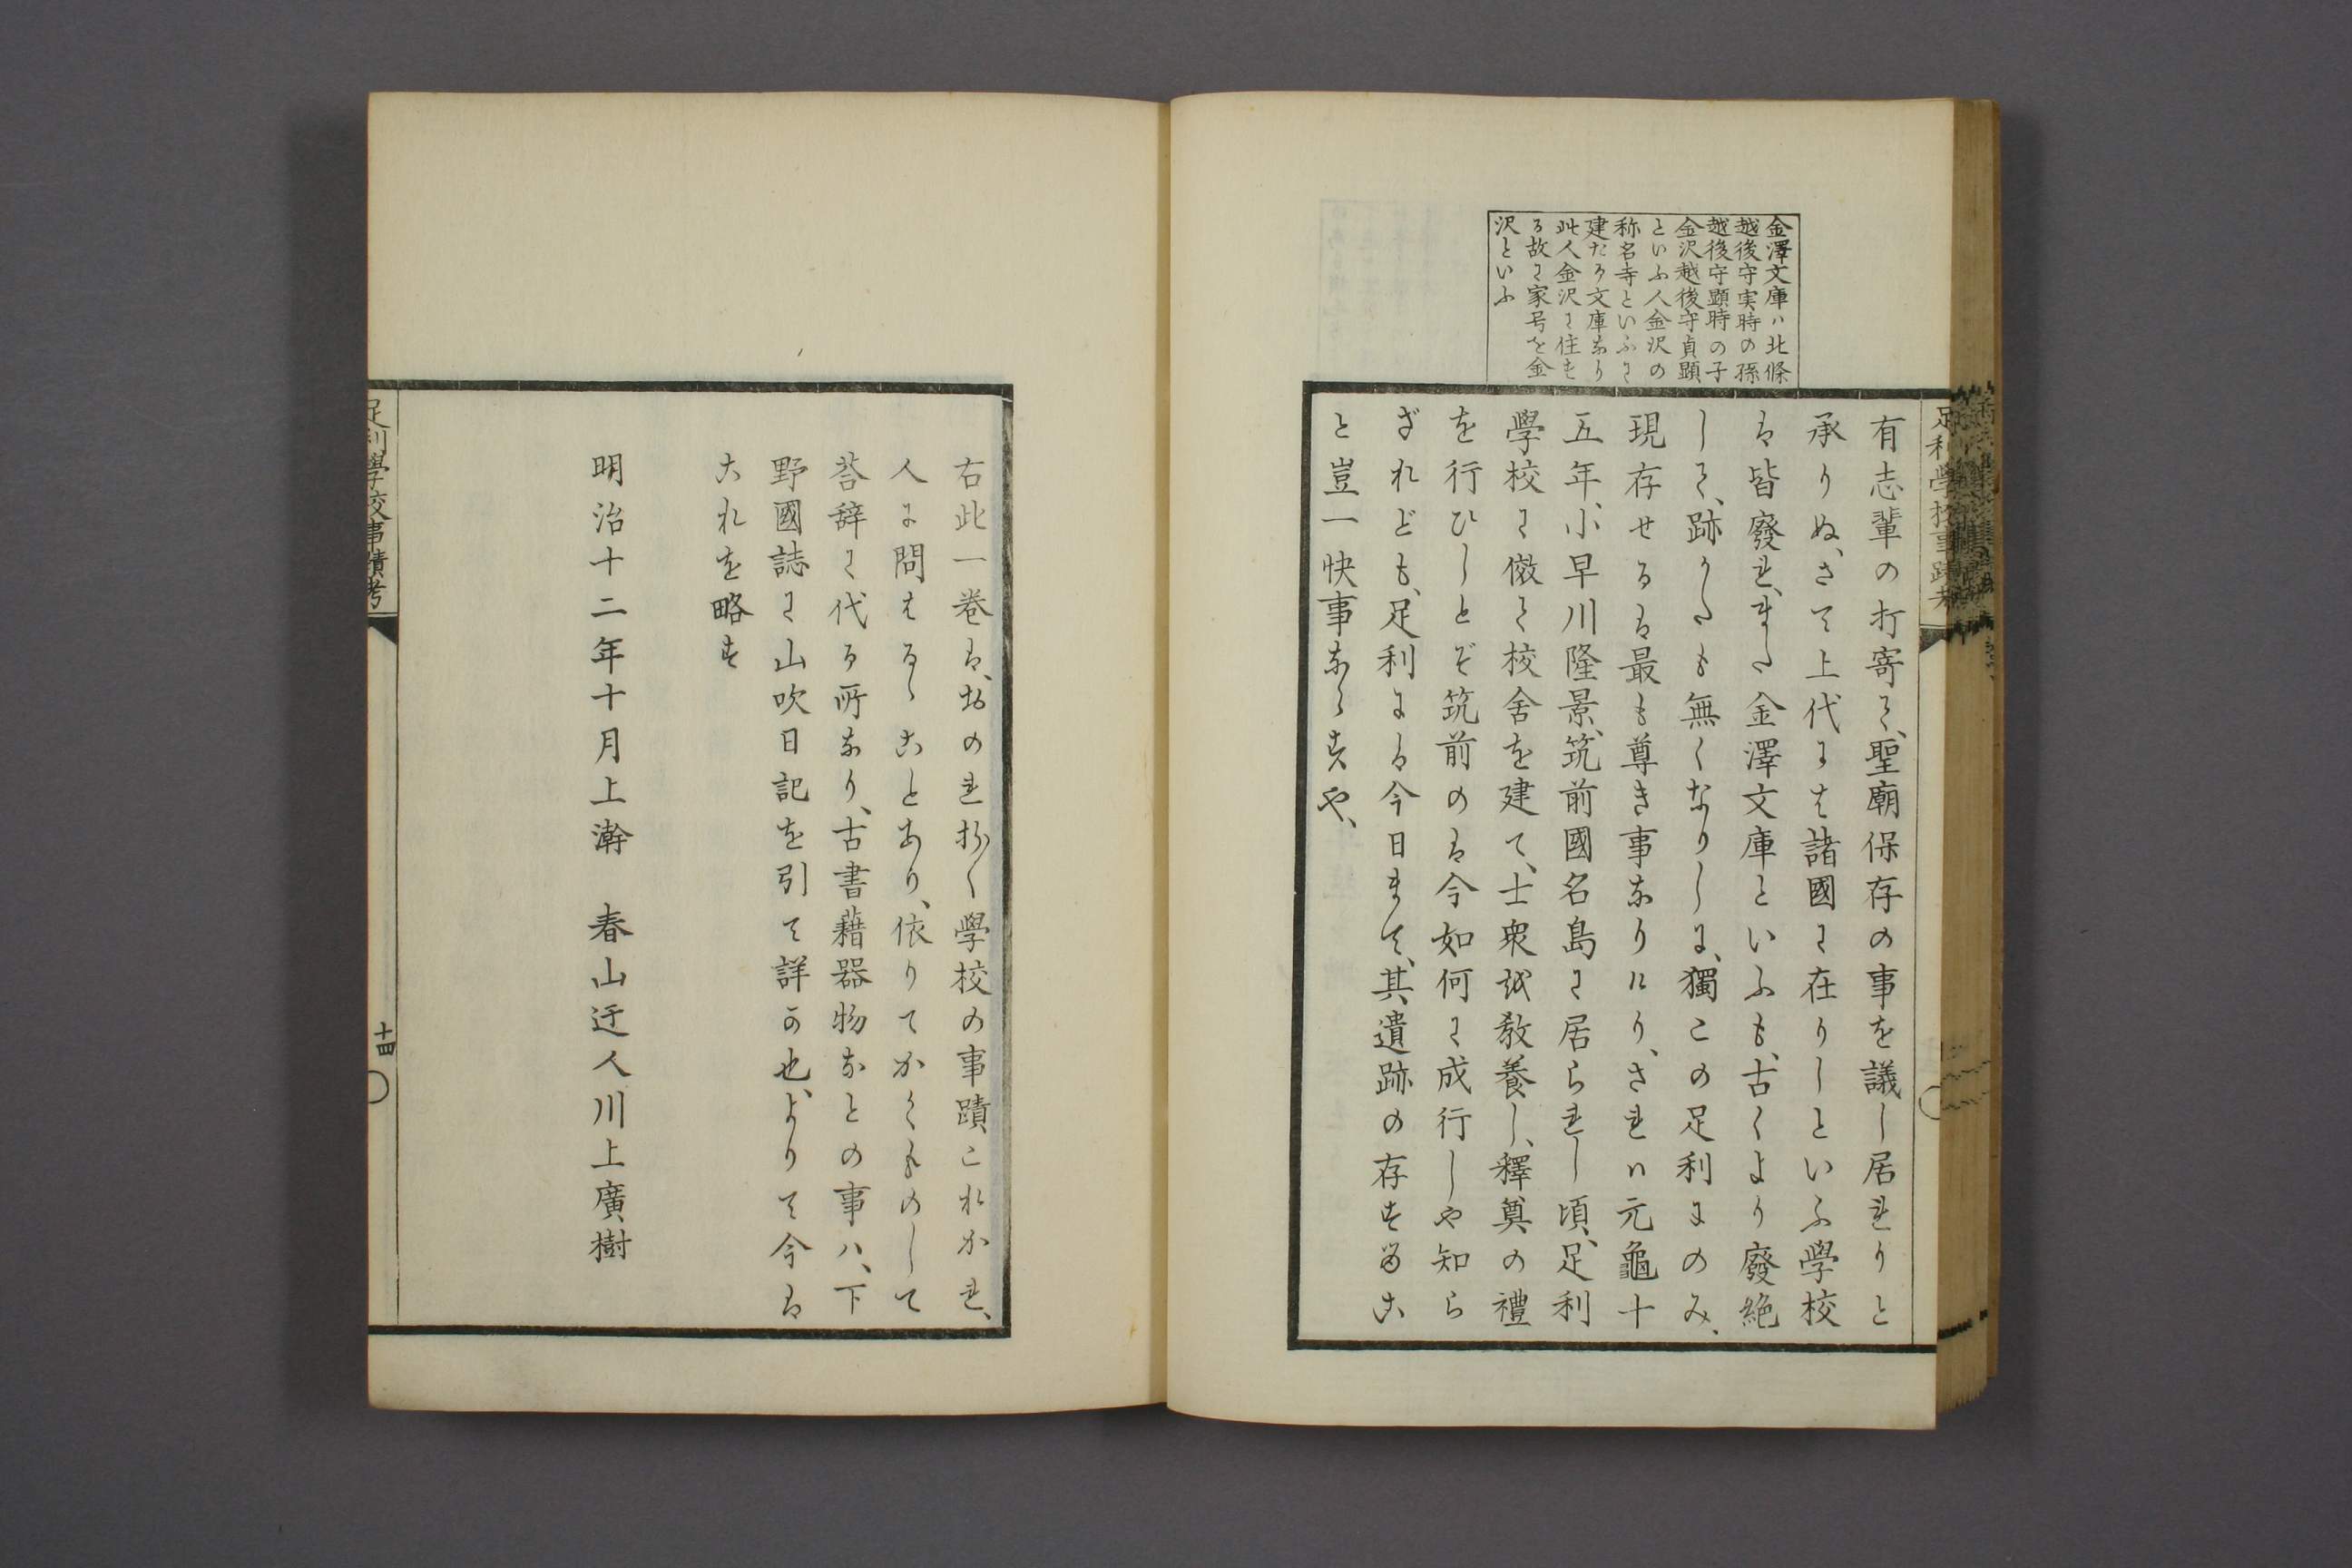 金澤文庫ハ北條
越後守実時の孫
越後守顕時の子
金沢越後守貞顕
といふ人金沢の
称名寺といふに
建たる文庫なり
此人金沢に住す
る故に家号を金
沢といふ
有志輩の打寄て、聖廟保存の事を議し居れりと
承りぬ、さて上代には諸國に在りしといふ學校
は皆廢れ、また金澤文庫といふも、古くより廢絶
して、跡かたも無くなりしに、獨この足利にのみ、
現存せるは最も尊き事なりけり、されハ元龜十
五年、小早川隆景、筑前國名島に居られし頃、足利
學校に傚て校舍を建て、士衆を教養し、釋奠の禮
を行ひしとぞ筑前のは今如何に成行しや知ら
ざれども、足利には今日まて、其遺跡の存するこ
と豈一快事ならすや、
右此一巻は、おのれ我學校の事蹟これかれ、
人に問はるゝことあり、依りてかくものして
荅辞に代る所なり、古書藉器物なとの事ハ、下
野國誌に山吹日記を引て詳か也、よりて今は
これを略す
明治十二年十月上澣　春山迂人川上廣樹
足利學校事蹟考
十四